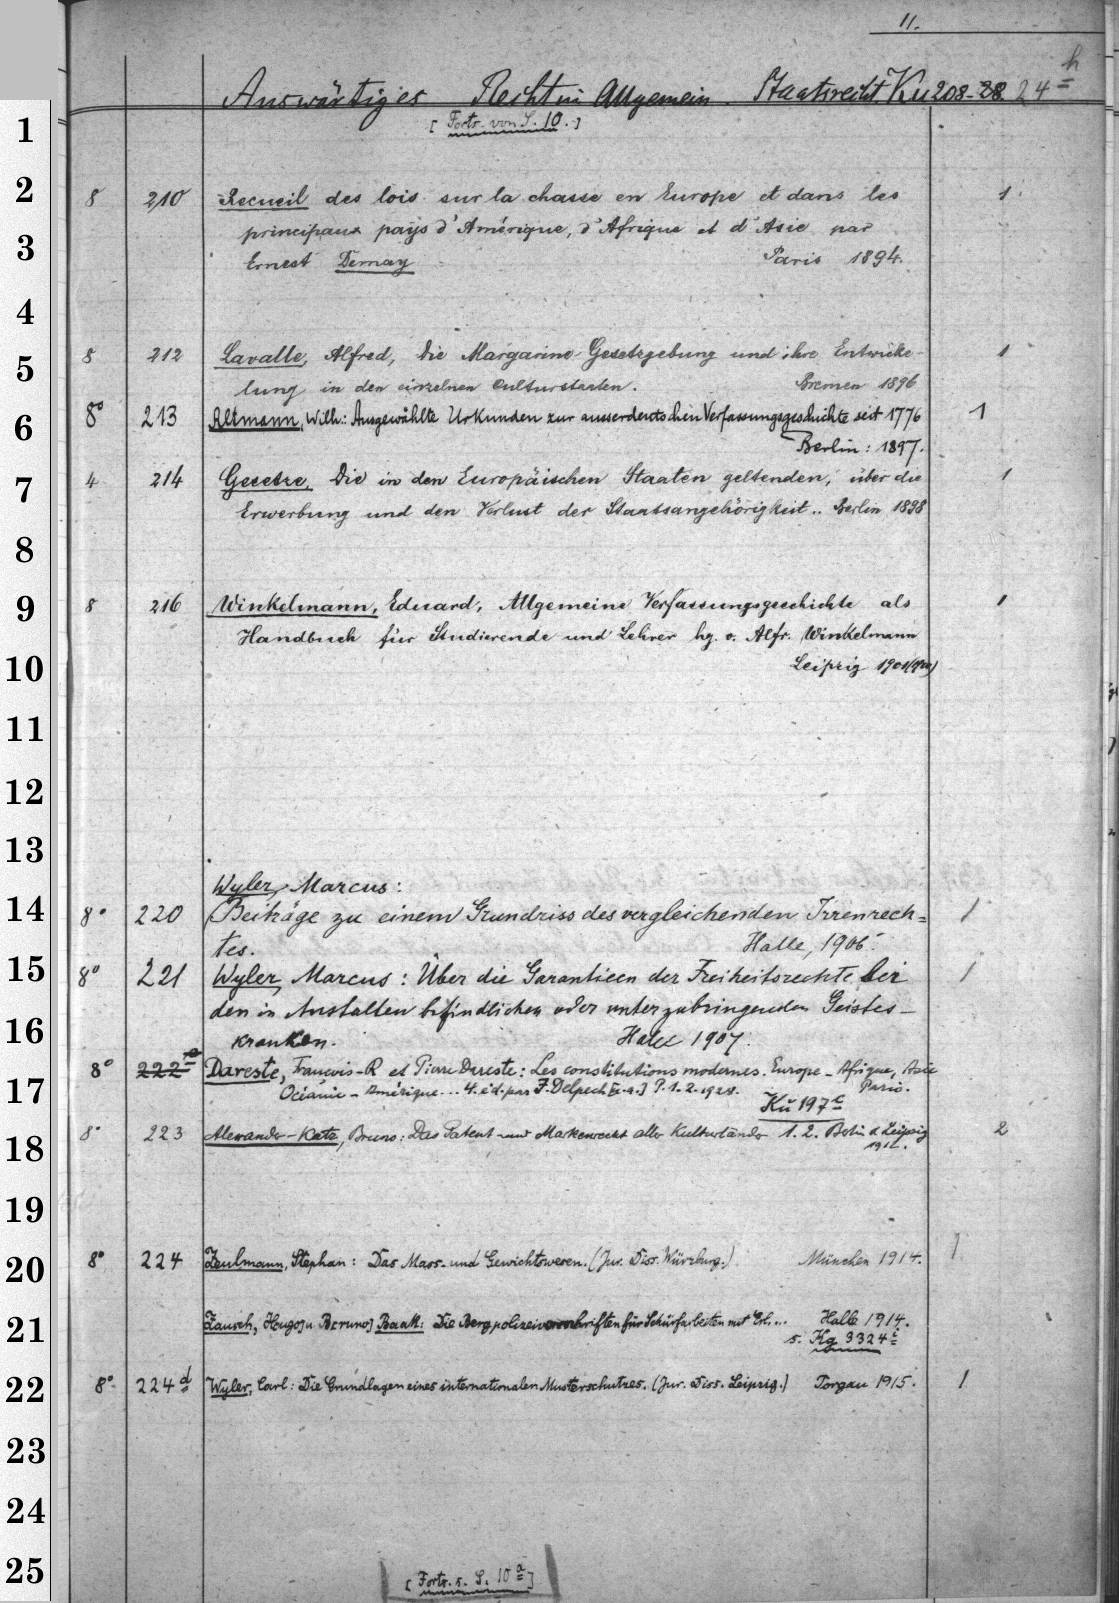 11.
Auswärtiges Recht im Allgemein. Staatsrecht Ku 208-28. 24 h
[Forts. von S. 10.]
1
2 8 210 Recueil des lois sur la chasse en Europe et dans les 1
principaux pays d'Amérique, d'Afrique et d'Asie par
3 Ernest Demay Paris 1894.
4
8 212 Lavalle, Alfred, Die Margarine-Gesetzgebung und ihre Entwicke- 1
5 lung in den einzelnen Culturstaaten. Bremen 1896
6 8° 213 Altmann, Wilh.: Ausgewählte Urkunden zur ausserdeutschen Verfassungsgeschichte seit 1776 1
Berlin: 1897.
7 4 214 Gesetze, Die in den Europäischen Staaten geltenden, über die 1
Erwerbung und den Verlust der Staatsangehörigkeit.. Berlin 1898
8
9 8 216 Winkelmann, Eduard, Allgemeine Verfassungsgeschichte als 1
Handbuch für Studierende und Lehrer hg. v. Alfr. Winkelmann
10 Leipzig 1901
11
12
13
Wyler, Marcus:
14 8° 220 Beiträge zu einem Grundriss des vergleichenden Irrenrech= 1
tes. Halle, 1906.
15 8° 221 Wyler, Marcus: Über die Garantieen der Freiheitsrechte bei 1
den in Anstalten befindlichen oder unterzubringenden Geistes-
16 kranken. Halle 1907.
8° 222 a Dareste, François-R et Pierre Dareste: Les constitutions modernes. Europe - Afrique, Asie
17 Océanie - Amérique... 4. éd. par J. Delpech [u. a.] P. 1. 2. 1928. Paris.
Ku 197 c
18 8° 223 Alexander-Katz, Bruno: Das Patent- und Markenrecht aller Kulturländer 1. 2. Berlin & Leipzig 2
191
19
20 8° 224 Zeulmann, Stephan: Das Mass- und Gewichtswesen. (Jur. Diss. Würzburg.) München 1914. 1
21 Zausch, Hugo] u B[runo] Baak: Die Bergpolizeivorschriften für Schürfarbeiten mit Erl... Halle 1914.
s. Kg 3324 i
22 8° 224 d Wyler, Carl: Die Grundlagen eines internationalen Musterschutzes. (Jur. Diss. Leipzig.) Torgau 1915. 1
23
24
25 [Forts. s. S. 10 a]